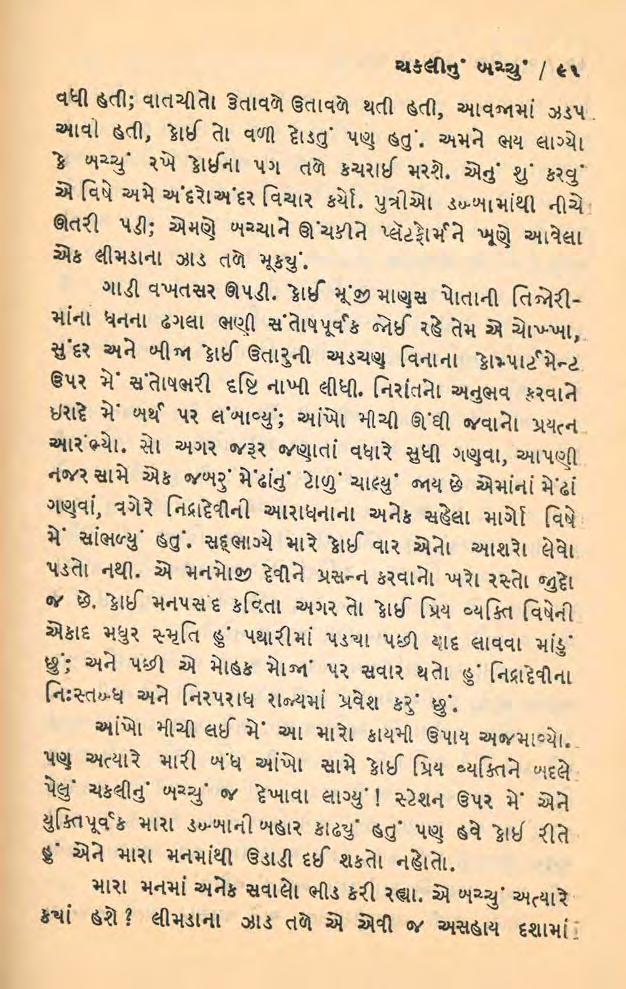 ચકલીનું બચ્ચું / ૯૧
વધી હતી; વાતચીતો ઉતાવળે ઉતાવળે થતી હતી, આવજામાં ઝડપ
આવી હતી, કોઈ તો વળી દોડતું પણ હતું. અમને ભય લાગ્યો
કે બચ્ચું રખે કોઈના પગ તળે કચરાઈ મરશે. એનું શું કરવું
એ વિષે અમે અંદરોઅંદર વિચાર કર્યો. પુત્રીઓ ડબ્બામાંથી નીચે
ઊતરી પડી; એમણે બચ્ચાને ઊંચકીને પ્લૅટફોર્મને ખૂણે આવેલા
એક લીમડાના ઝાડ તળે મૂક્યું.
ગાડી વખતસર ઊપડી. કોઈ મૂંજી માણસ પોતાની તિજોરી-
માંના ધનના ઢગલા ભણી સંતોષપૂર્વક જોઈ રહે તેમ એ ચોખ્ખા,
સુંદર અને બીજા કોઈ ઉતારુની અડચણ વિનાના કોમ્પાર્ટમેન્ટ
ઉપર મેં સંતોષભરી દૃષ્ટિ નાખી લીધી. નિરાંતનો અનુભવ કરવાને
ઇરાદે મેં બર્થ પર લંબાવ્યું; આંખો મીચી ઊંઘી જવાનો પ્રયત્ન
આરંભ્યો. સો અગર જરૂર જણાતાં વધારે સુધી ગણવા, આપણી
નજર સામે એક જબરું મેંઢાંનું ટોળું ચાલ્યું જાય છે એમાંનાં મેંઢાં
ગણવાં, વગેરે નિદ્રાદેવીની આરાધનાના અનેક સહેલા માર્ગો વિષે
મેં સાંભળ્યું હતું. સદ્ભાગ્યે મારે કોઈ વાર એનો આશરો લેવો
પડતો નથી. એ મનમોજી દેવીને પ્રસન્ન કરવાનો ખરો રસ્તો જુદો
જ છે. કોઈ મનપસંદ કવિતા અગર તો કોઈ પ્રિય વ્યક્તિ વિષેની
એકાદ મધુર સ્મૃતિ હું પથારીમાં પડ્યા પછી યાદ લાવવા માંડું
છું; અને પછી એ મોહક મોજાં પર સવાર થતો હું નિદ્રાદેવીના
નિઃસ્તબ્ધ અને નિરપરાધ રાજ્યમાં પ્રવેશ કરું છું.
આંખો મીચી લઈ મેં આ મારો કાયમી ઉપાય અજમાવ્યો.
પણ અત્યારે મારી બંધ આંખો સામે કોઈ પ્રિય વ્યક્તિને બદલે
પેલું ચકલીનું બચ્ચું જ દેખાવા લાગ્યું! સ્ટેશન ઉપર મેં એને
યુક્તિપૂર્વક મારા ડબ્બાની બહાર કાઢ્યું હતું પણ હવે કોઈ રીતે
હું એને મારા મનમાંથી ઉડાડી દઈ શકતો નહોતો.
મારા મનમાં અનેક સવાલો ભીડ કરી રહ્યા. એ બચ્ચું અત્યારે
ક્યાં હશે? લીમડાના ઝાડ તળે એ એવી જ અસહાય દશામાં